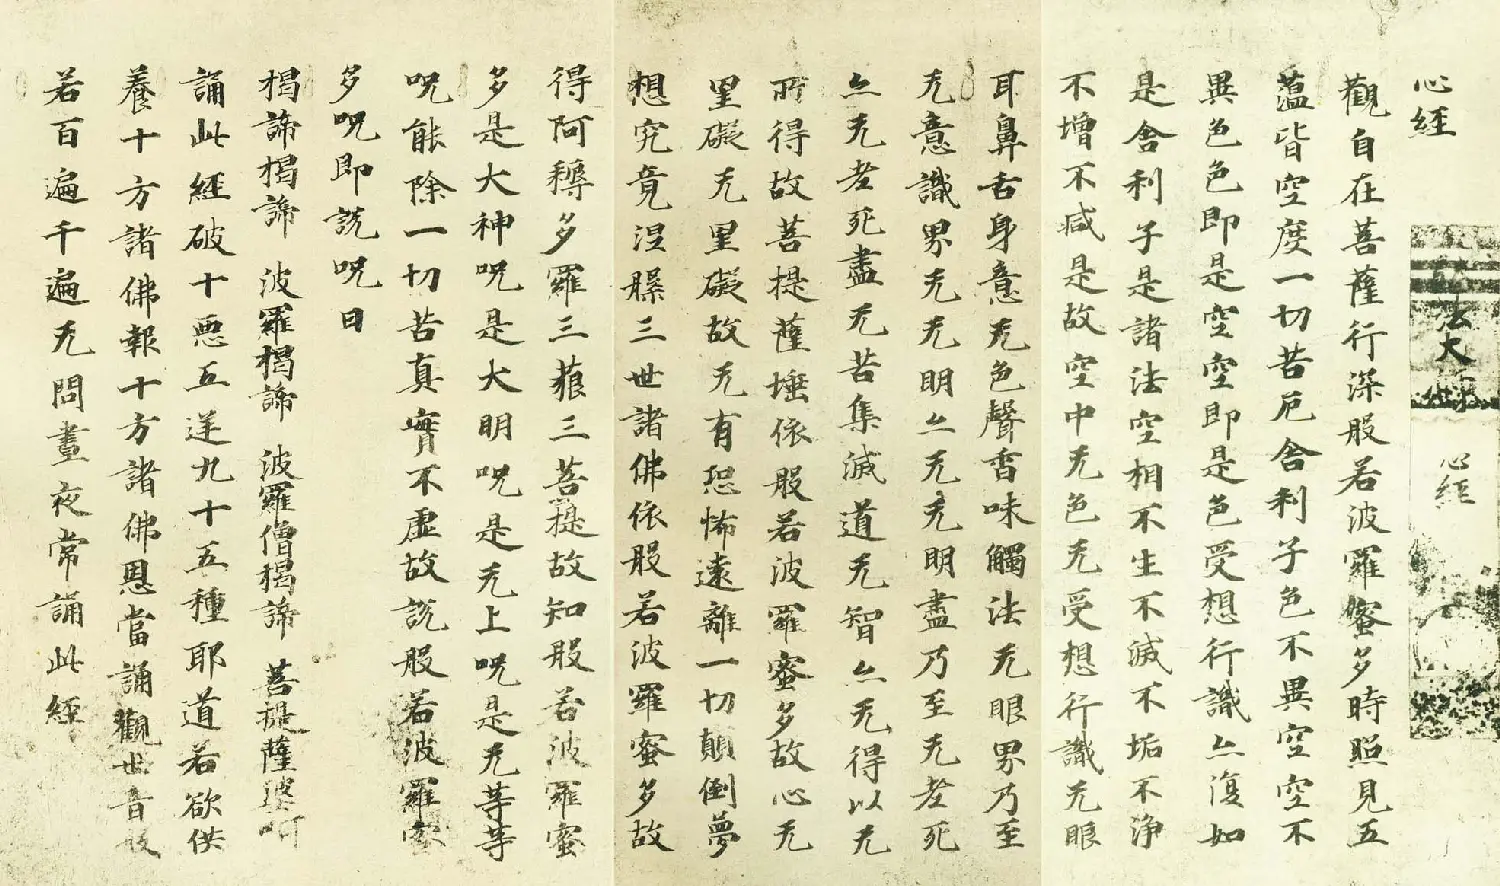 心経
觀自在菩薩行深般若波羅蜜多時照見五
蕴皆空度一切苦厄舍利子色不異空空不
異色色即是空空即是色受想行識亠復如
是舍利子是諸法空相不生不滅不垢不淨
不增不减是故空中无色无受想行識无眼
耳鼻舌身意无色聲香味觸法无眼界乃至
无意識界无无明亠无无明盡乃至无老死
亠无老死盡无苦集滅道无智亠无得以无
所得故菩提薩埵依般若波羅蜜多故心无
罣礙无罣礙故无有恐怖遠離一切顛倒夢
想究竟涅槃三世諸佛依般若波羅蜜多故
得阿耨多羅三藐三菩提故知般若波羅蜜
多是大神呪是大明呪是无上呪是无等等
呪能除一切苦真實不虛故說般若波羅蜜
多呪即說呪曰
揭諦揭諦 波羅揭諦 波羅僧揭諦 菩提薩婆呵
誦此經破十惡五逆九十五種耶道若欲供
養十方諸佛報十方諸佛恩當誦觀世音般
若百遍千遍无問晝夜常誦此經
心経